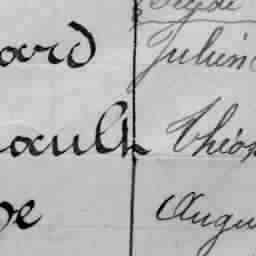 ard Julien
ault Théop
pe Augu